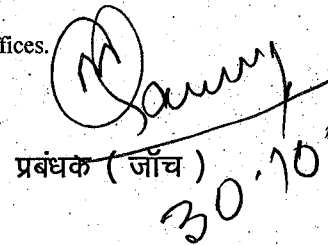 ffices.
प्रबंधक ( जॉच )
30.10